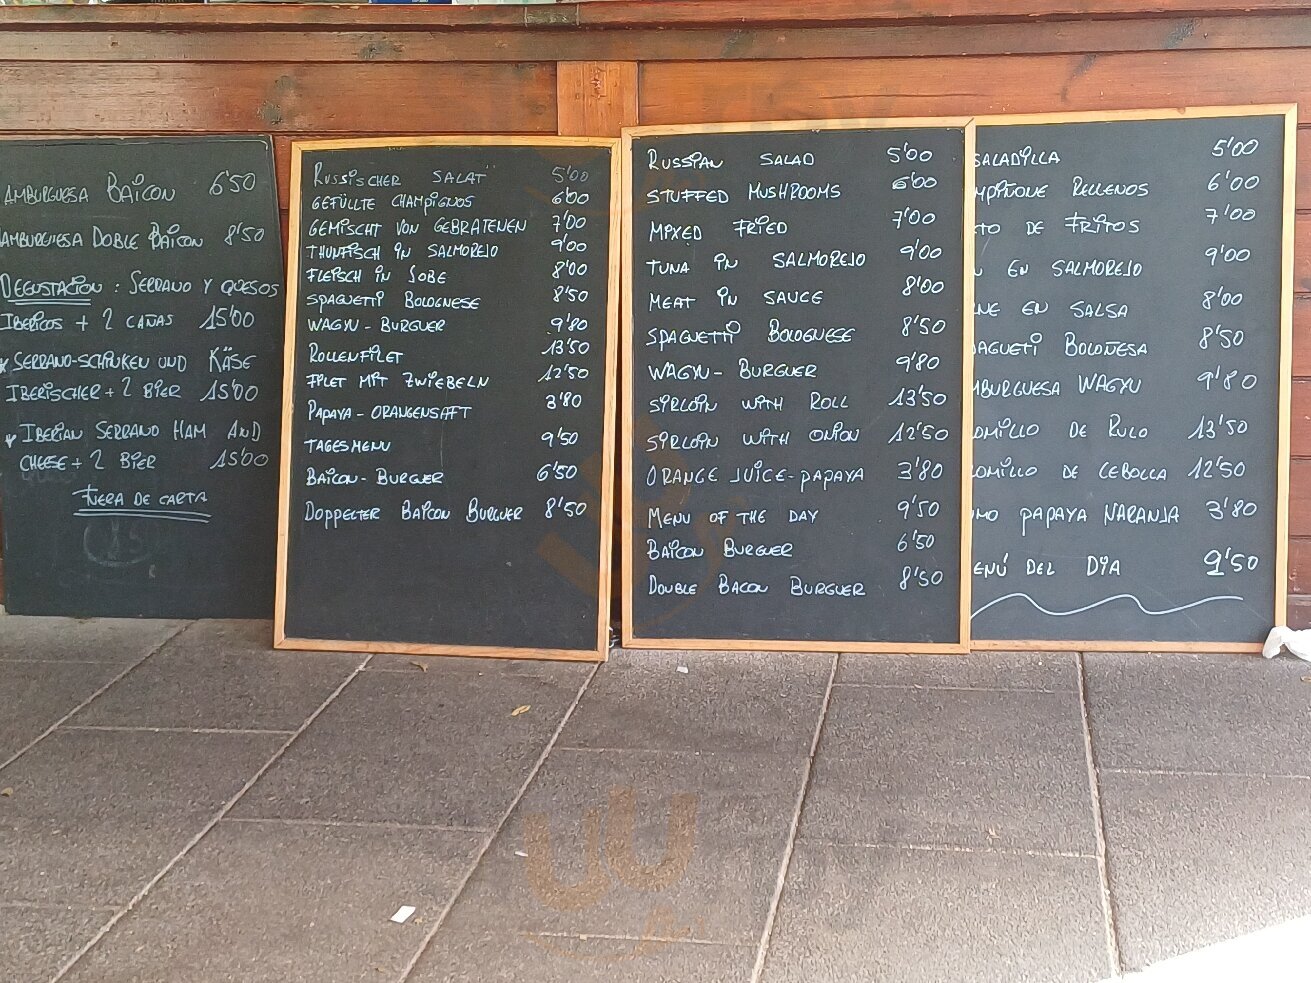 AMBURGUESA BAICON 6'50
AMBURGUESA DOBLE BAICON 8'50
DEGUSTACION : SERRANO Y QUESOS
IBERICOS + 2 CAÑAS 15'00
SERRANO-SCHINKEN UND KÄSE
IBERISCHER + 2 BIER 15'00
IBERIAN SERRANO HAM AND
CHEESE + 2 BIER 15'00
FUERA DE CARTA
RUSSISCHER SALAT 5'00
GEFÜLLTE CHAMPIGNOS 6'00
GEMISCHT VON GEBRATENEN 7'00
THUNFISCH IN SALMOREJO 9'00
FLEISCH IN SOBE 8'00
SPAGUETTI BOLOGNESE 8'50
WAGYU - BURGUER 9'80
ROLLENFILET 13'50
FILET MIT ZWIEBELN 12'50
PAPAYA - ORANGENSAFT 3'80
TAGESMENU 9'50
BAICON - BURGUER 6'50
DOPPELTER BAICON BURGUER 8'50
RUSSIAN SALAD 5'00
STUFFED MUSHROOMS 6'00
MIXED FRIED 7'00
TUNA IN SALMOREJO 9'00
MEAT IN SAUCE 8'00
SPAGUETTI BOLOGNESE 8'50
WAGYU - BURGUER 9'80
SIRLOIN WITH ROLL 13'50
SIRLOIN WITH ONION 12'50
ORANGE JUICE - PAPAYA 3'80
MENU OF THE DAY 9'50
BAICON BURGUER 6'50
DOUBLE BACON BURGUER 8'50
SALADILLA 5'00
MPIÑONE RELLENOS 6'00
TO DE FRITOS 7'00
N EN SALMOREJO 9'00
NE EN SALSA 8'00
AGUETI BOLOÑESA 8'50
MBURGUESA WAGYU 9'80
OMILLO DE RULO 13'50
OMILLO DE CEBOLLA 12'50
MO PAPAYA NARANJA 3'80
ENÚ DEL DIA 9'50